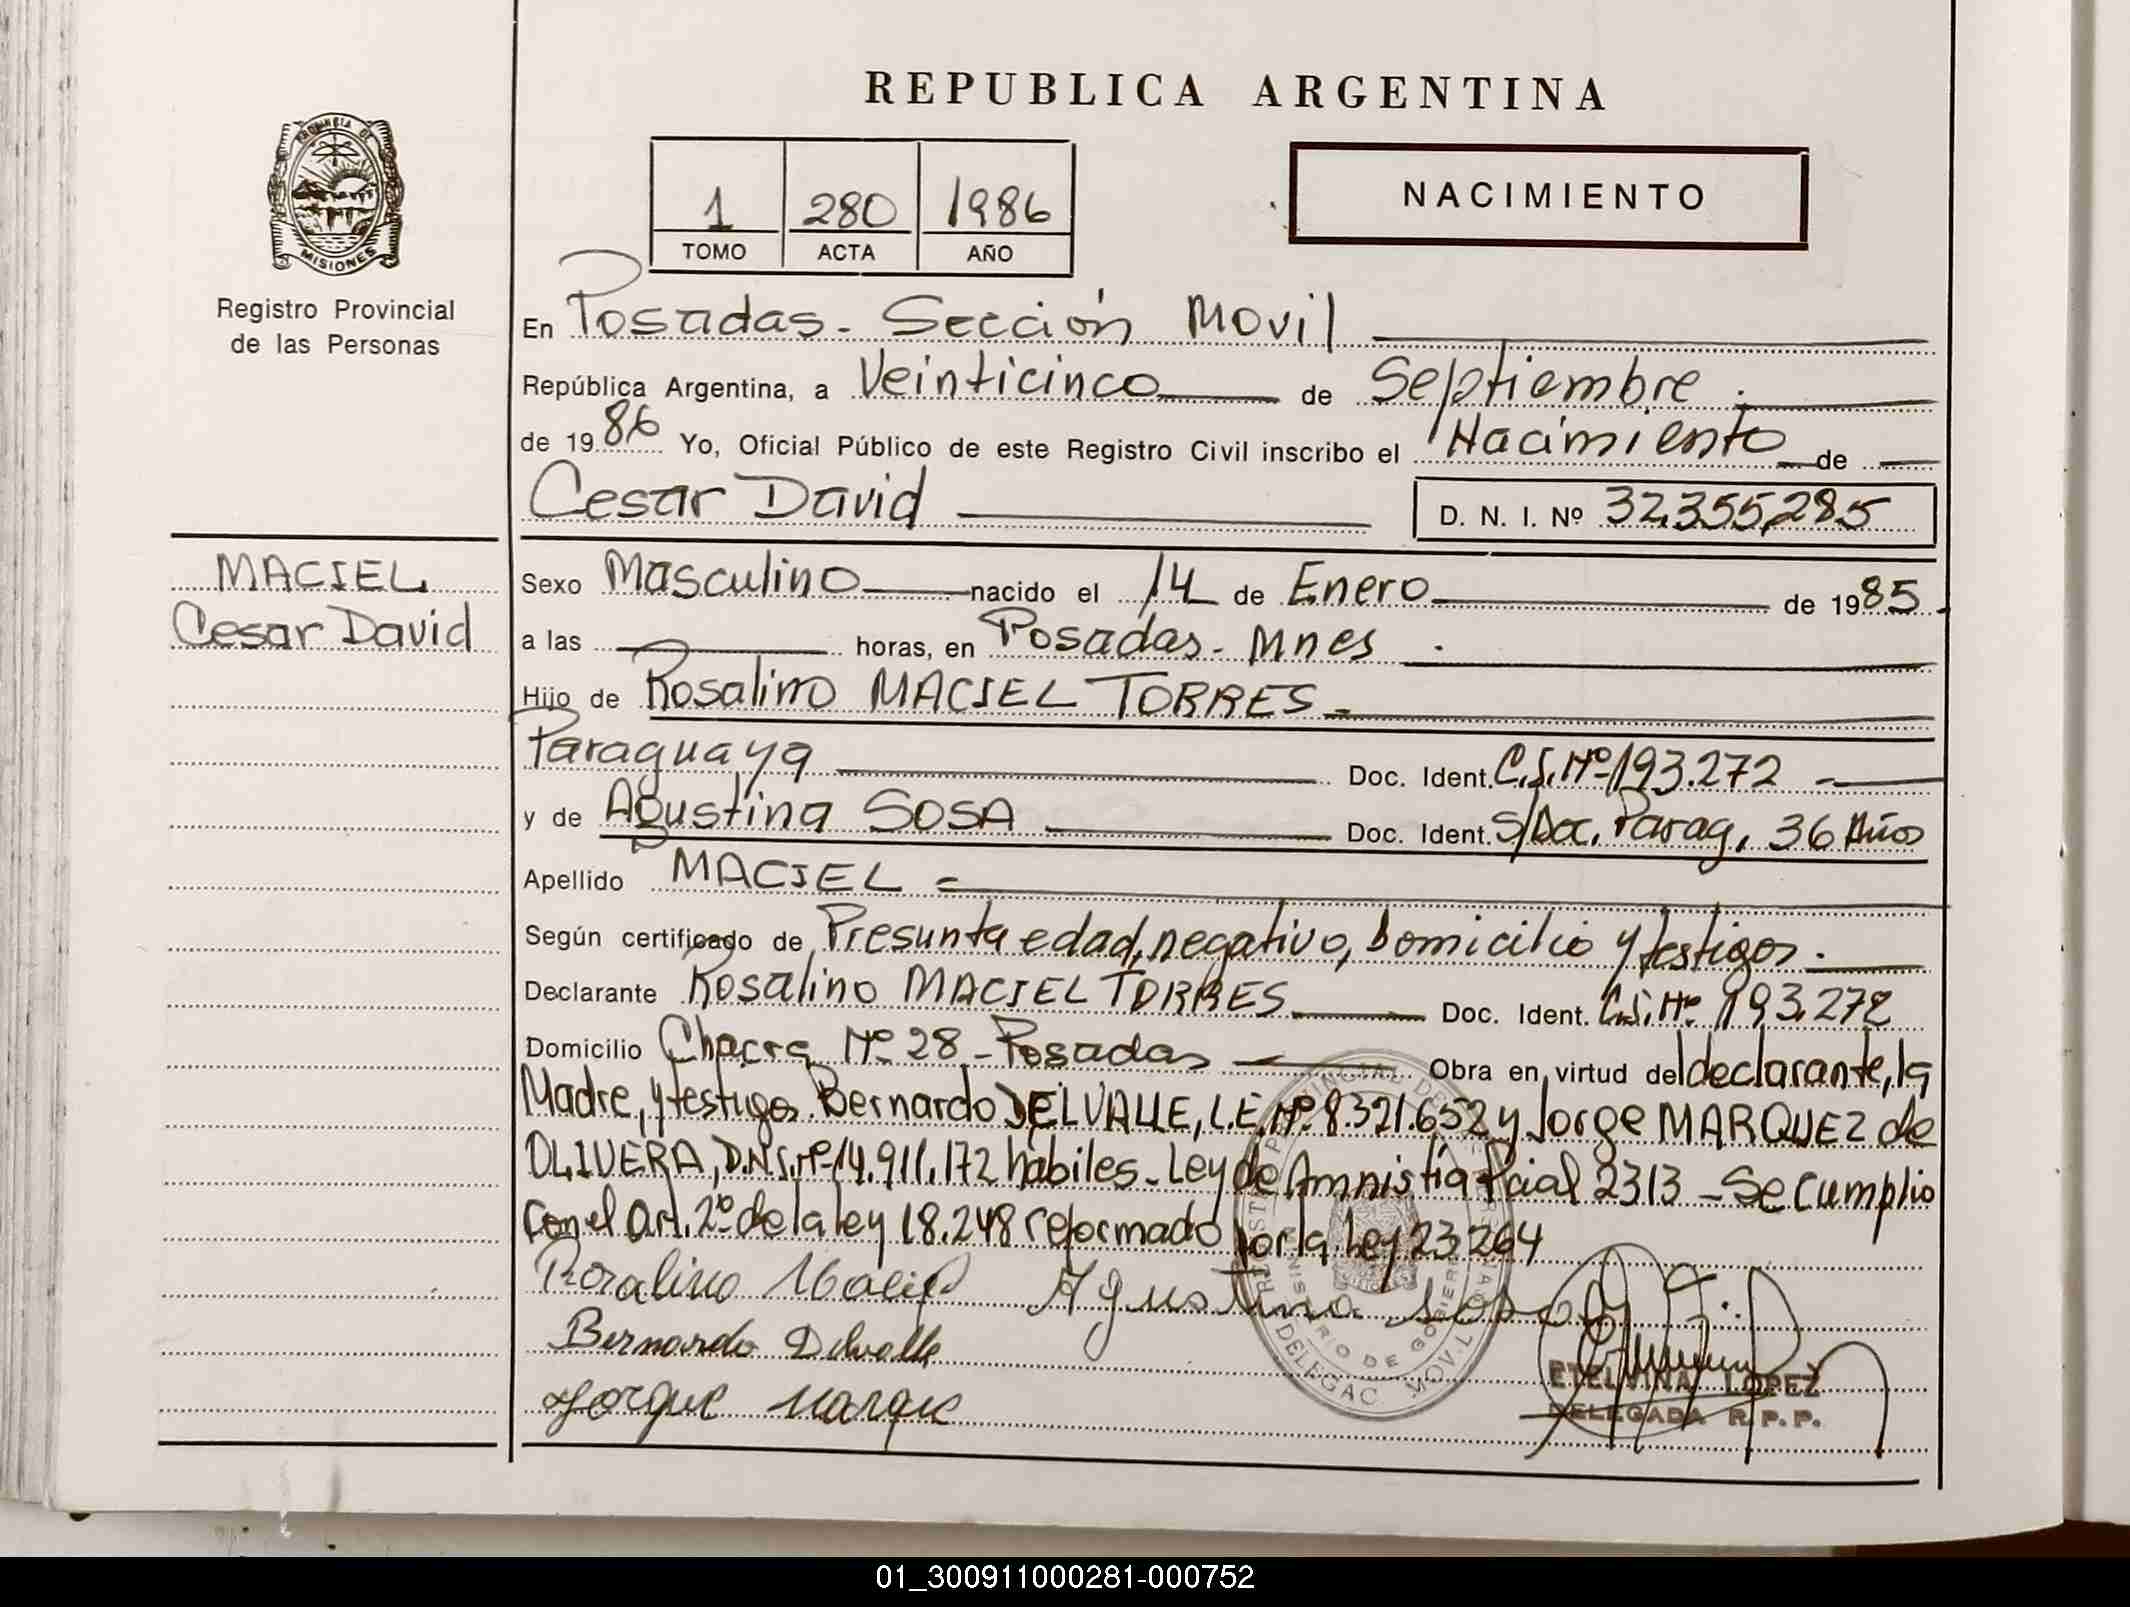 REPUBLICA ARGENTINA
PROVINCIA DE
MISIONES
Registro Provincial
de las Personas
1 280 1986
TOMO ACTA AÑO
NACIMIENTO
En Posadas - Sección Movil
República Argentina, a Veinticinco de Septiembre.
de 1986 Yo, Oficial Público de este Registro Civil inscribo el Nacimiento de
Cesar David D. N. I. Nº 32.355,285
MACIEL
Cesar David
Sexo Masculino nacido el 14 de Enero de 1985
a las horas, en Posadas - Mnes.
Hijo de Rosalino MACIEL TORRES -
Paraguaya Doc. Ident. C.I. Nº 193.272 -
y de Agustina SOSA Doc. Ident. S/Doc. Parag, 36 Años
Apellido MACIEL -
Según certificado de Presunta edad, negativo, Domicilio y testigos.
Declarante Rosalino MACIEL TORRES Doc. Ident. C.I. Nº 193.272
Domicilio Chacra Nº 28 - Posadas - Obra en virtud del declarante, la
Madre, y testigos Bernardo DELVALLE, L.E. Nº 8.321.652 y Jorge MARQUEZ de
OLIVERA, D.N.I. Nº 14.911.172 habiles - Ley de Amnistía Pcial 2313 - Se cumplio
con el Art. 2º de la ley 18.248 reformado por la Ley 23264
Rosalino Maciel Agustina Sosa
Bernardo Delvalle
Jorque Marque
ETELVINA LOPEZ
DELEGADA R.P.P.
01_300911000281-000752